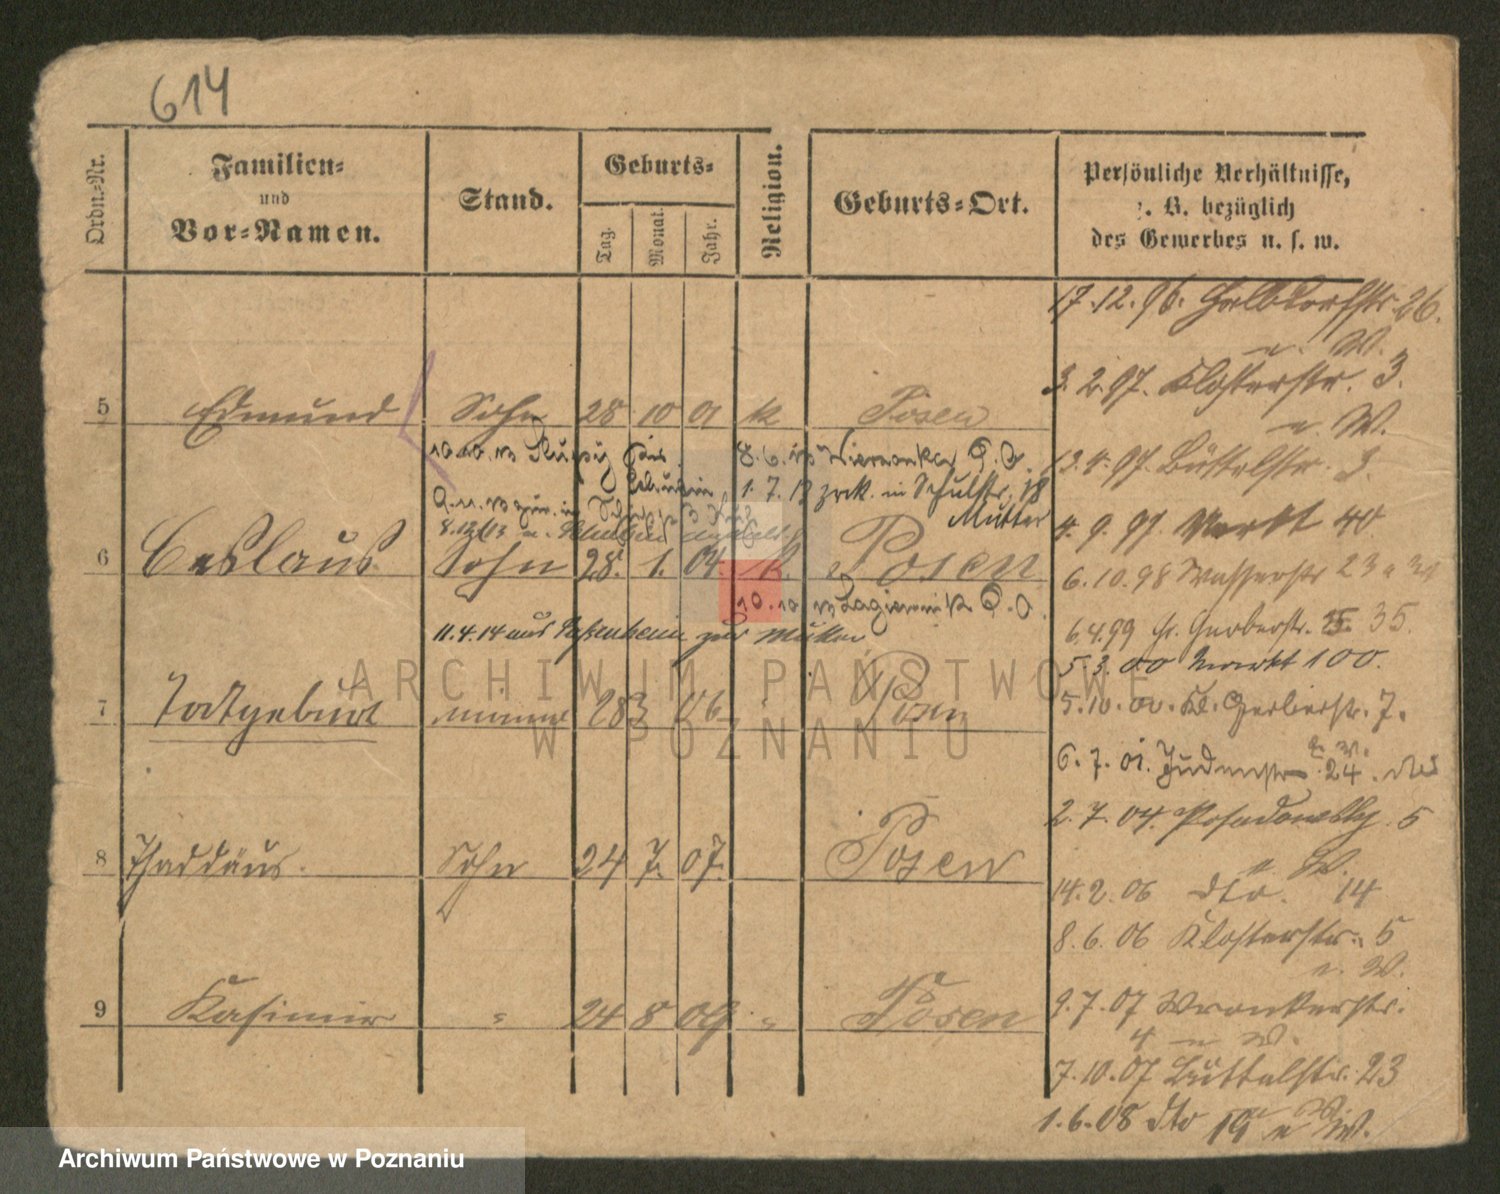 614
Ordn.=Nr.
Familien=
und
Vor=Namen.
Stand.
Geburts=
Tag.
Monat.
Jahr.
Religion.
Geburts=Ort.
Persönliche Verhältnisse,
z. B. bezüglich
des Gewerbes u. s. w.
17.12.96. Halbdorfstr. 26.
n. W.
3.2.97. Klosterstr. 3.
n. W.
5 Edmund Sohn 28 10 01 k Posen
10.10.13
8.6.13 Wieronka P. O.
13.4.97. Büttelstr. 3.
1.7.13 zrck. in Schulstr. 18
Mutter
9.11.13
8.12.13
4.9.97. Markt 40
6 Ceslaus Sohn 28. 1. 04. k. Posen
6.10.98 Wasserstr 23
10.10.13 Lagiewnik P. O.
11.4.14 aus zur Mutter
6.4.99 Gr. Gerberstr. 35.
5.3.00 Markt 100.
7 Totgeburt männl 28 3 06 Posen
5.10.00. Kl. Gerberstr. 7.
6.7.01. Judenstr 24.
2.7.04. Posadowsky 5
n. W.
8 Thaddäus. Sohn 24 7. 07. Posen
14.2.06 dto. 14
8.6.06 Klosterstr. 5
n. W.
9 Kasimir " 24 8 09 " Posen
9.7.07 Wronkerstr.
4 n W.
7.10.07 Büttelstr. 23
1.6.08 dto 19 n W.
ARCHIWUM PAŃSTWOWE
W POZNANIU
Archiwum Państwowe w Poznaniu